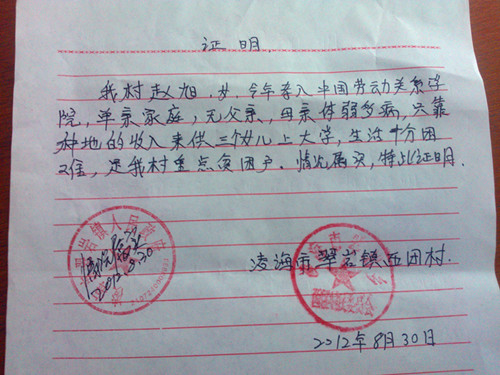 证明
我村赵旭,女,今年考入中国劳动关系学
院,单亲家庭,无父亲,母亲体弱多病,只靠
种地的收入来供三个女儿上大学,生活十分困
难,是我村重点贫困户.情况属实,特此证明.
人民政府
情况属实
2012.8.30
凌海市翠岩镇西团村.
2012年8月30日